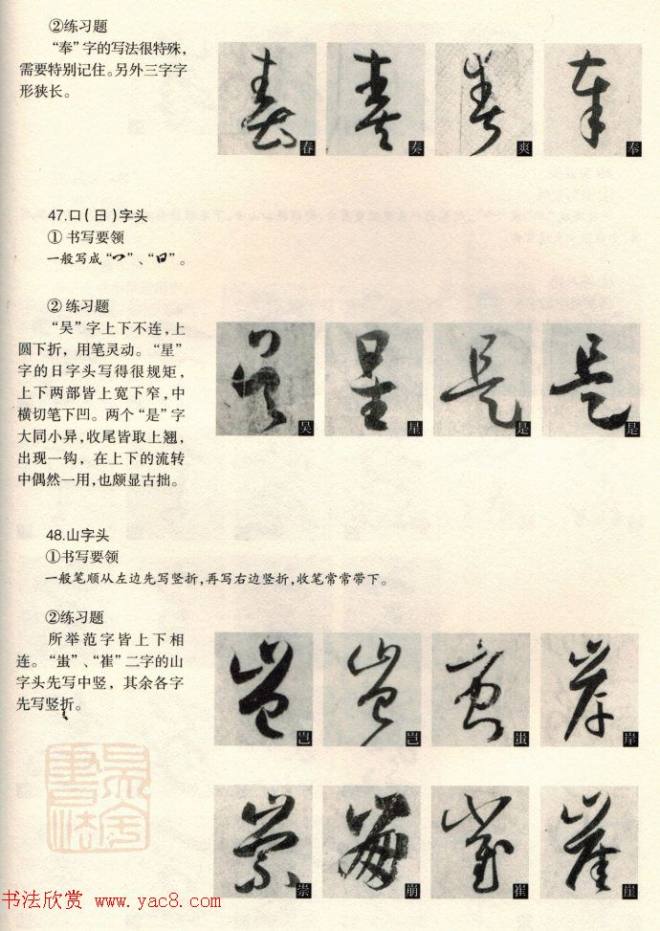 ②练习题
“奉”字的写法很特殊，
需要特别记住。另外三字字
形狭长。
春 奏 爽 奉
47.口（日）字头
①书写要领
一般写成“𠃌”、“日”。
②练习题
“吴”字上下不连，上
圆下折，用笔灵动。“星”
字的日字头写得很规矩，
上下两部皆上宽下窄，中
横切笔下凹。两个“是”字
大同小异，收尾皆取上翘，
出现一钩，在上下的流转
中偶然一用，也颇显古拙。
吴 星 是 是
48.山字头
①书写要领
一般笔顺从左边先写竖折，再写右边竖折，收笔常常带下。
②练习题
所举范字皆上下相
连。“蚩”、“崔”二字的山
字头先写中竖，其余各字
先写竖折。
岂 岂 蚩 岸
崇 崩 崔 崖
书法欣赏 www.yac8.com